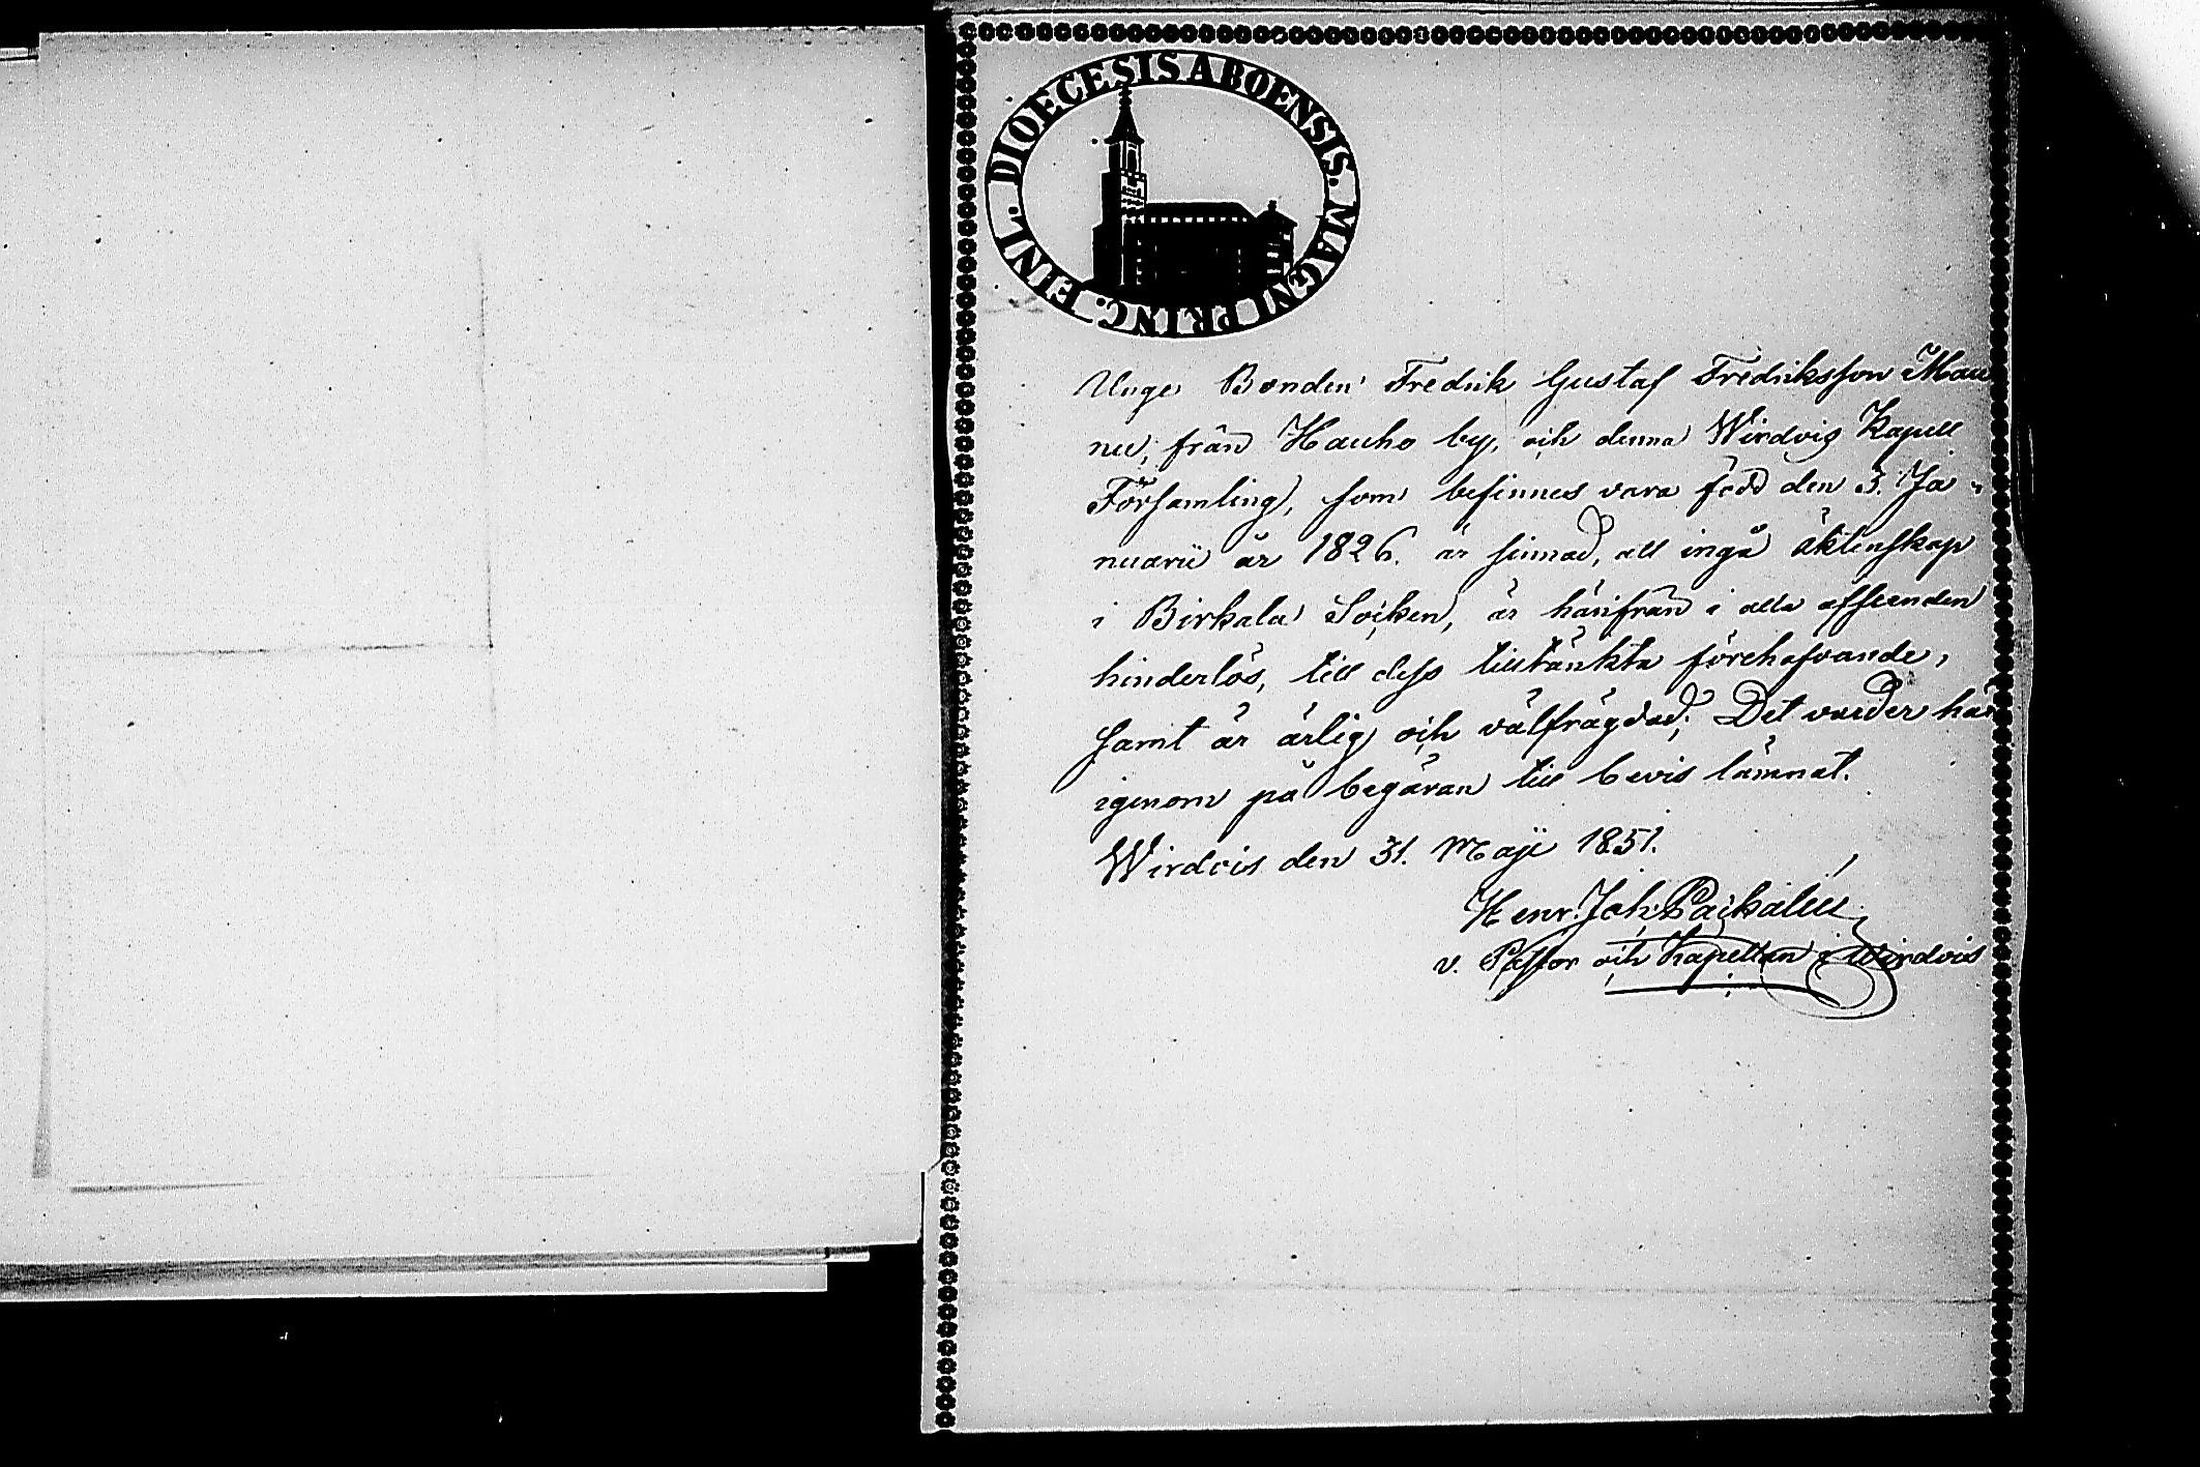 DIOECESIS ABOENSIS. MAGNI PRINC. FINL.
Unge Bonden Fredrik Gustaf Fredriksson Mau
nu, från Hauho by, och denna Wirdois Kapell
Församling, som befinnes vara född den 3. Ja-
nuarii år 1826. är sinnad, att ingå äktenskap
i Birkala Socken, är härifrån i alla afseenden
hinderlös, till dess tilltänkta förehafvande,
samt är ärlig och välfrägdad; Det varder här
igenom på begäran till bevis lämnat.
Wirdois den 31. Maji 1851.
Henr. Joh.
v. Pastor och Kapellan i Wirdois